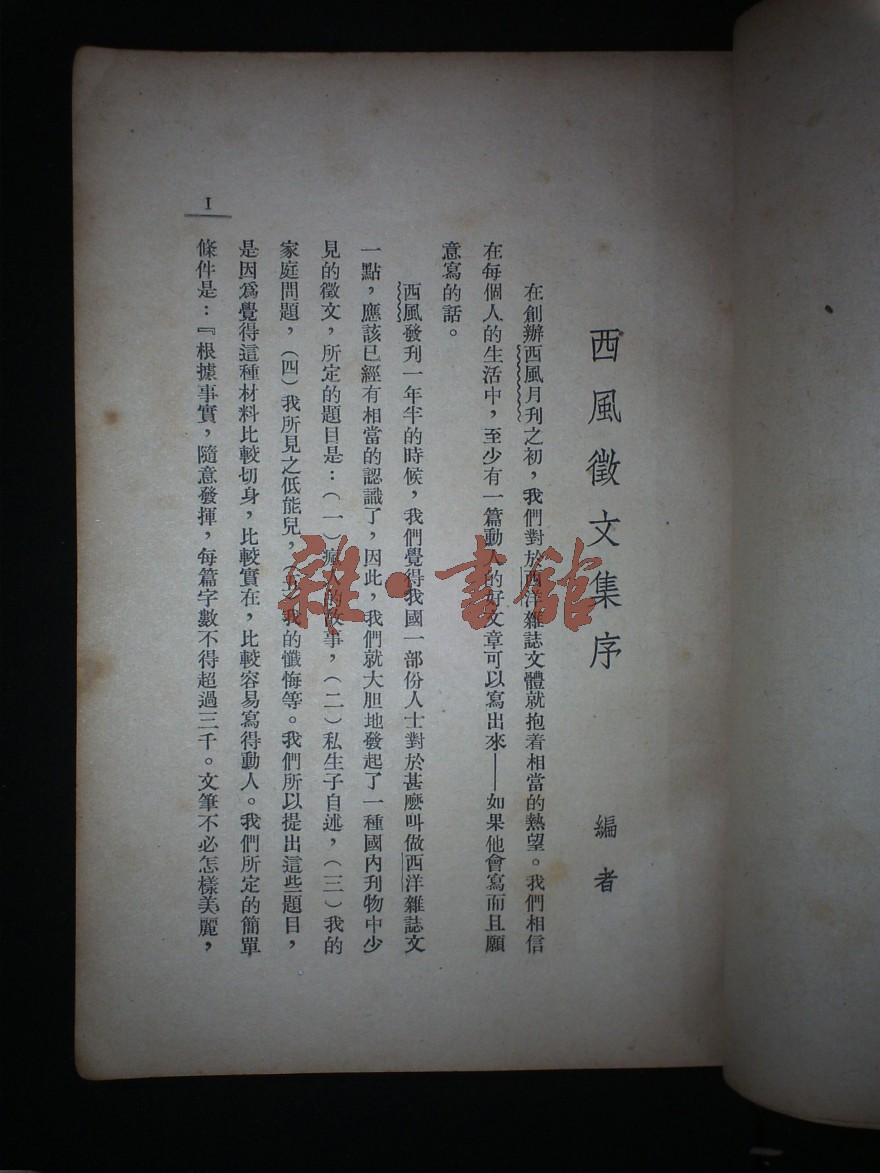 西風徵文集序
編者
在創辦西風月刊之初，我們對於西洋雜誌文體就抱着相當的熱望。我們相信
在每個人的生活中，至少有一篇動人的好文章可以寫出來——如果他會寫而且願
意寫的話。
西風發刊一年半的時候，我們覺得我國一部份人士對於甚麼叫做西洋雜誌文
一點，應該已經有相當的認識了，因此，我們就大胆地發起了一種國內刊物中少
見的徵文，所定的題目是：（一）瘋人的故事，（二）私生子自述，（三）我的
家庭問題，（四）我所見之低能兒，（五）我的懺悔等。我們所以提出這些題目，
是因爲覺得這種材料比較切身，比較實在，比較容易寫得動人。我們所定的簡單
條件是：『根據事實，隨意發揮，每篇字數不得超過三千。文筆不必怎樣美麗，
I
雜·書館